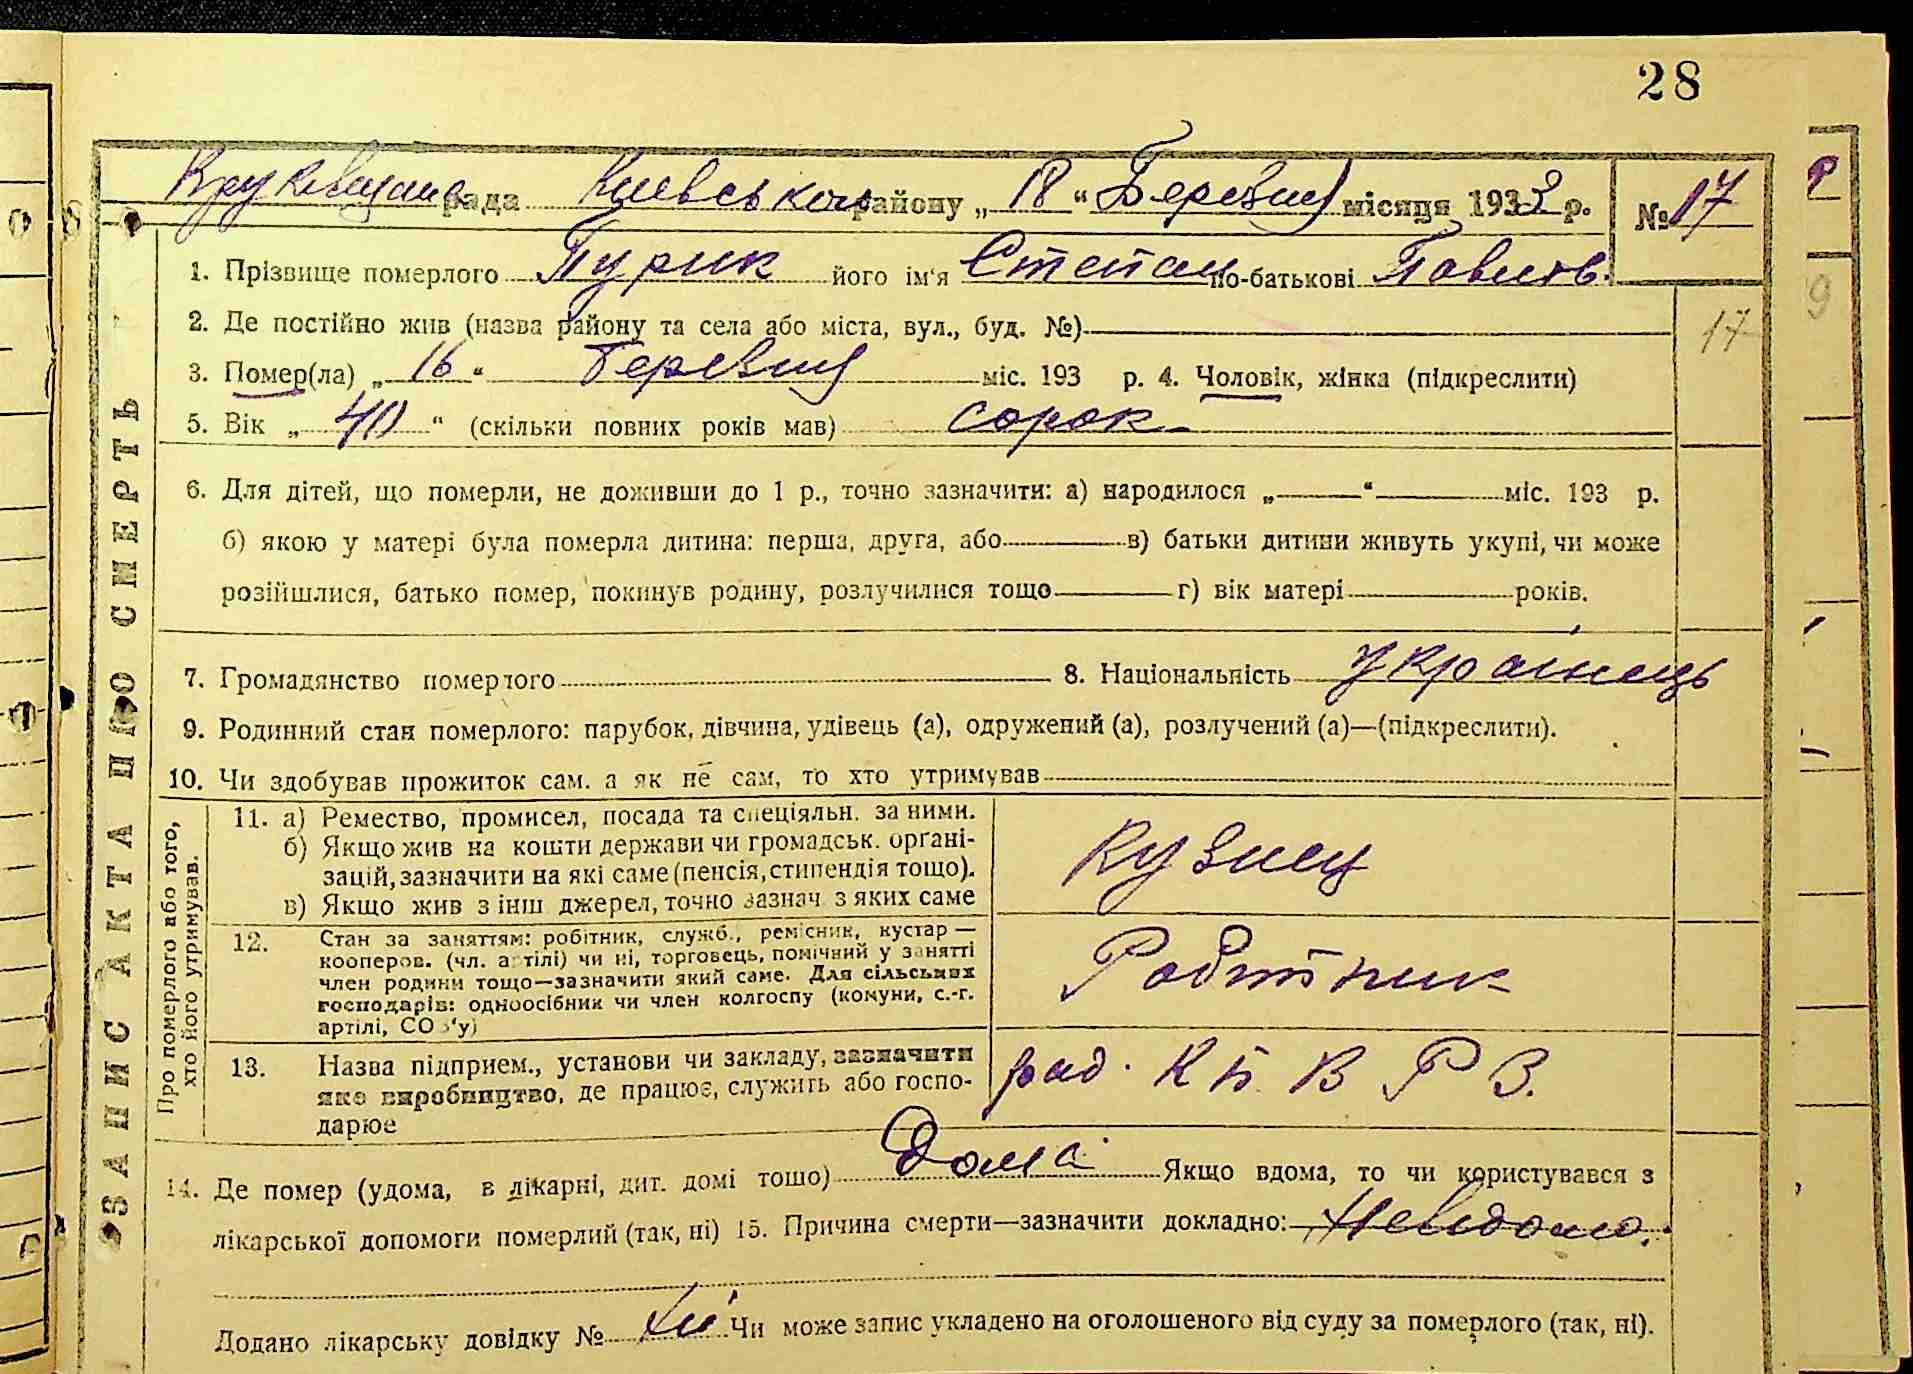 28
рада Київської району „ 18 “ Березня місяця 1933 р. № 17
1. Прізвище померлого Пурик його ім‘я Степан по-батькові Павлов.
2. Де постійно жив (назва району та села або міста, вул., буд. №)
17
3. Помер(ла) „ 16 “ Березня міс. 193 р. 4. Чоловік, жінка (підкреслити)
5. Вік „ 40 “ (скільки повних років мав) сорок
6. Для дітей, що померли, не доживши до 1 р., точно зазначити: а) народилося „ “ міс. 193 р.
б) якою у матері була померла дитина: перша, друга, або в) батьки дитини живуть укупі, чи може
розійшлися, батько помер, покинув родину, розлучилися тощо г) вік матері років.
7. Громадянство померлого 8. Національність Українець
9. Родинний стан померлого: парубок, дівчина, удівець (а), одружений (а), розлучений (а)—(підкреслити).
10. Чи здобував прожиток сам. а як не сам, то хто утримував
ЗАПИС АКТА ПРО СМЕРТЬ
Про померлого або того,
хто його утримував.
11. а) Ремество, промисел, посада та спеціяльн. за ними.
б) Якщо жив на кошти держави чи громадськ. органі-
зацій, зазначити на які саме (пенсія, стипендія тощо).
в) Якщо жив з інш джерел, точно зазнач з яких саме
Кузнец
12. Стан за заняттям: робітник, служб., ремісник, кустар —
кооперов. (чл. артілі) чи ні, торговець, помічний у занятті
член родини тощо—зазначити який саме. Для сільських
господарів: одноосібник чи член колгоспу (комуни, с.-г.
артілі, СОЗ‘у)
Робітник
13. Назва підприєм., установи чи закладу, зазначити
яке виробництво, де працює, служить або госпо-
дарює
рад. К П В Р З.
14. Де помер (удома, в лікарні, дит. домі тощо) Дома Якщо вдома, то чи користувався з
лікарської допомоги померлий (так, ні) 15. Причина смерти—зазначити докладно: Невідомо.
Додано лікарську довідку № Ні Чи може запис укладено на оголошеного від суду за померлого (так, ні).